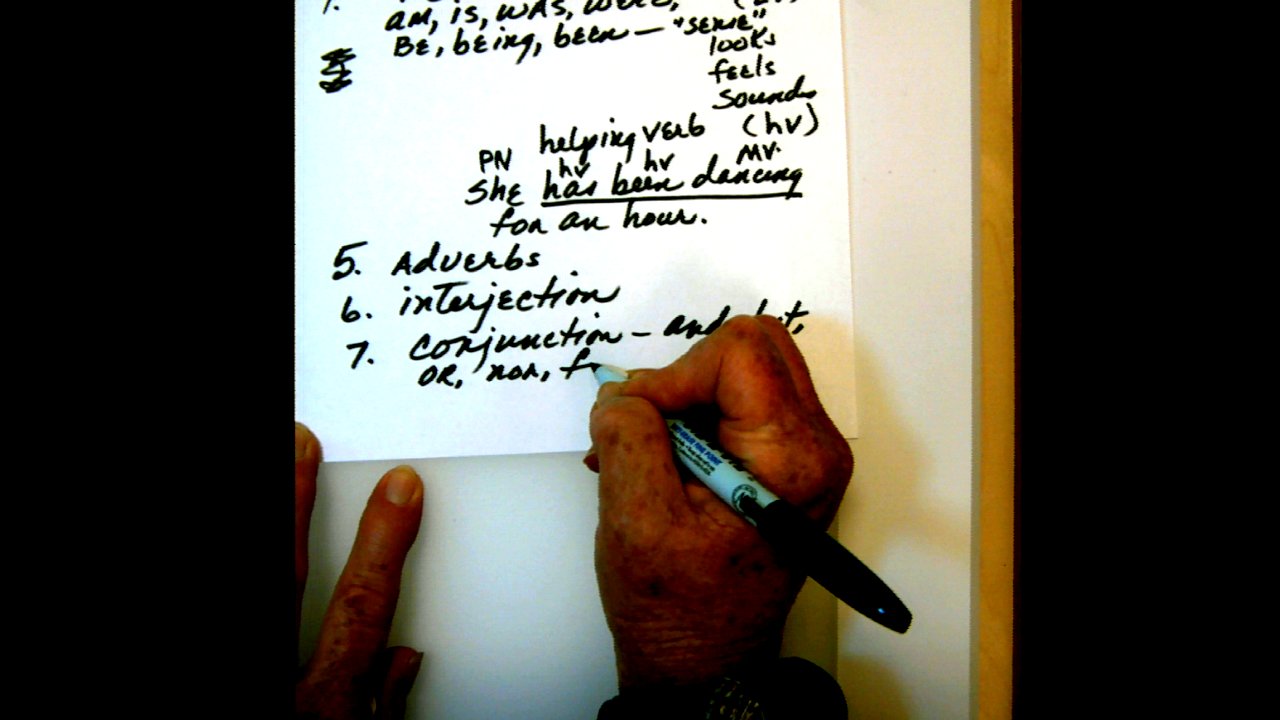 am, is, was, were,
BE, being, been — "sense"
looks
feels
sounds
helping verb (hv)
PN hv hv MV.
She has been dancing
for an hour.
5. Adverbs
6. interjection
7. conjunction — and, but,
OR, nor, f